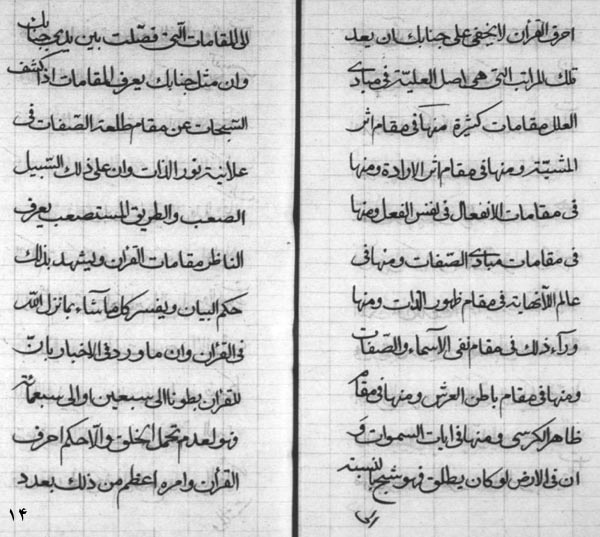 احرف القرآن لا يخفى على جنابك ان بعد
تلك المراتب التى هى اصل العلية فى مبادى
العلل مقامات كثيرة منها فى مقام اثر
المشية ومنها فى مقام اثر الارادة ومنها
فى مقامات الانفعال فى نفس الفعل ومنها
فى مقامات مبادى الصفات ومنها فى
عالم اللانهاية فى مقام ظهور الذات ومنها
ورآء ذلك فى مقام نفى الاسماء والصفات
ومنها فى مقام باطن العرش ومنها فى مقام
ظاهر الكرسى ومنها فى ايات السموات و
ان فى الارض لو كان يطلق فهو شبح بالنسبة
الى
الى المقامات التى فصلت بين يدى جنابك
وان مثل جنابك يعرف المقامات اذا كشف
السبحات عن مقام طلعة الصفات فى
علانية نور الذات وان على ذلك السبيل
الصعب والطريق المستصعب يعرف
الناظر مقامات القرآن ويشهد بذلك
حكم البيان ويفسر كلما شآء بما نزل الله
فى القرآن وان ما ورد فى الاخبار بان
للقرآن بطونا الى سبعين والى سبعمائة
فهو لعدم تحمل الخلق والا حكم احرف
القرآن وامره اعظم من ذلك بعدد
١۴